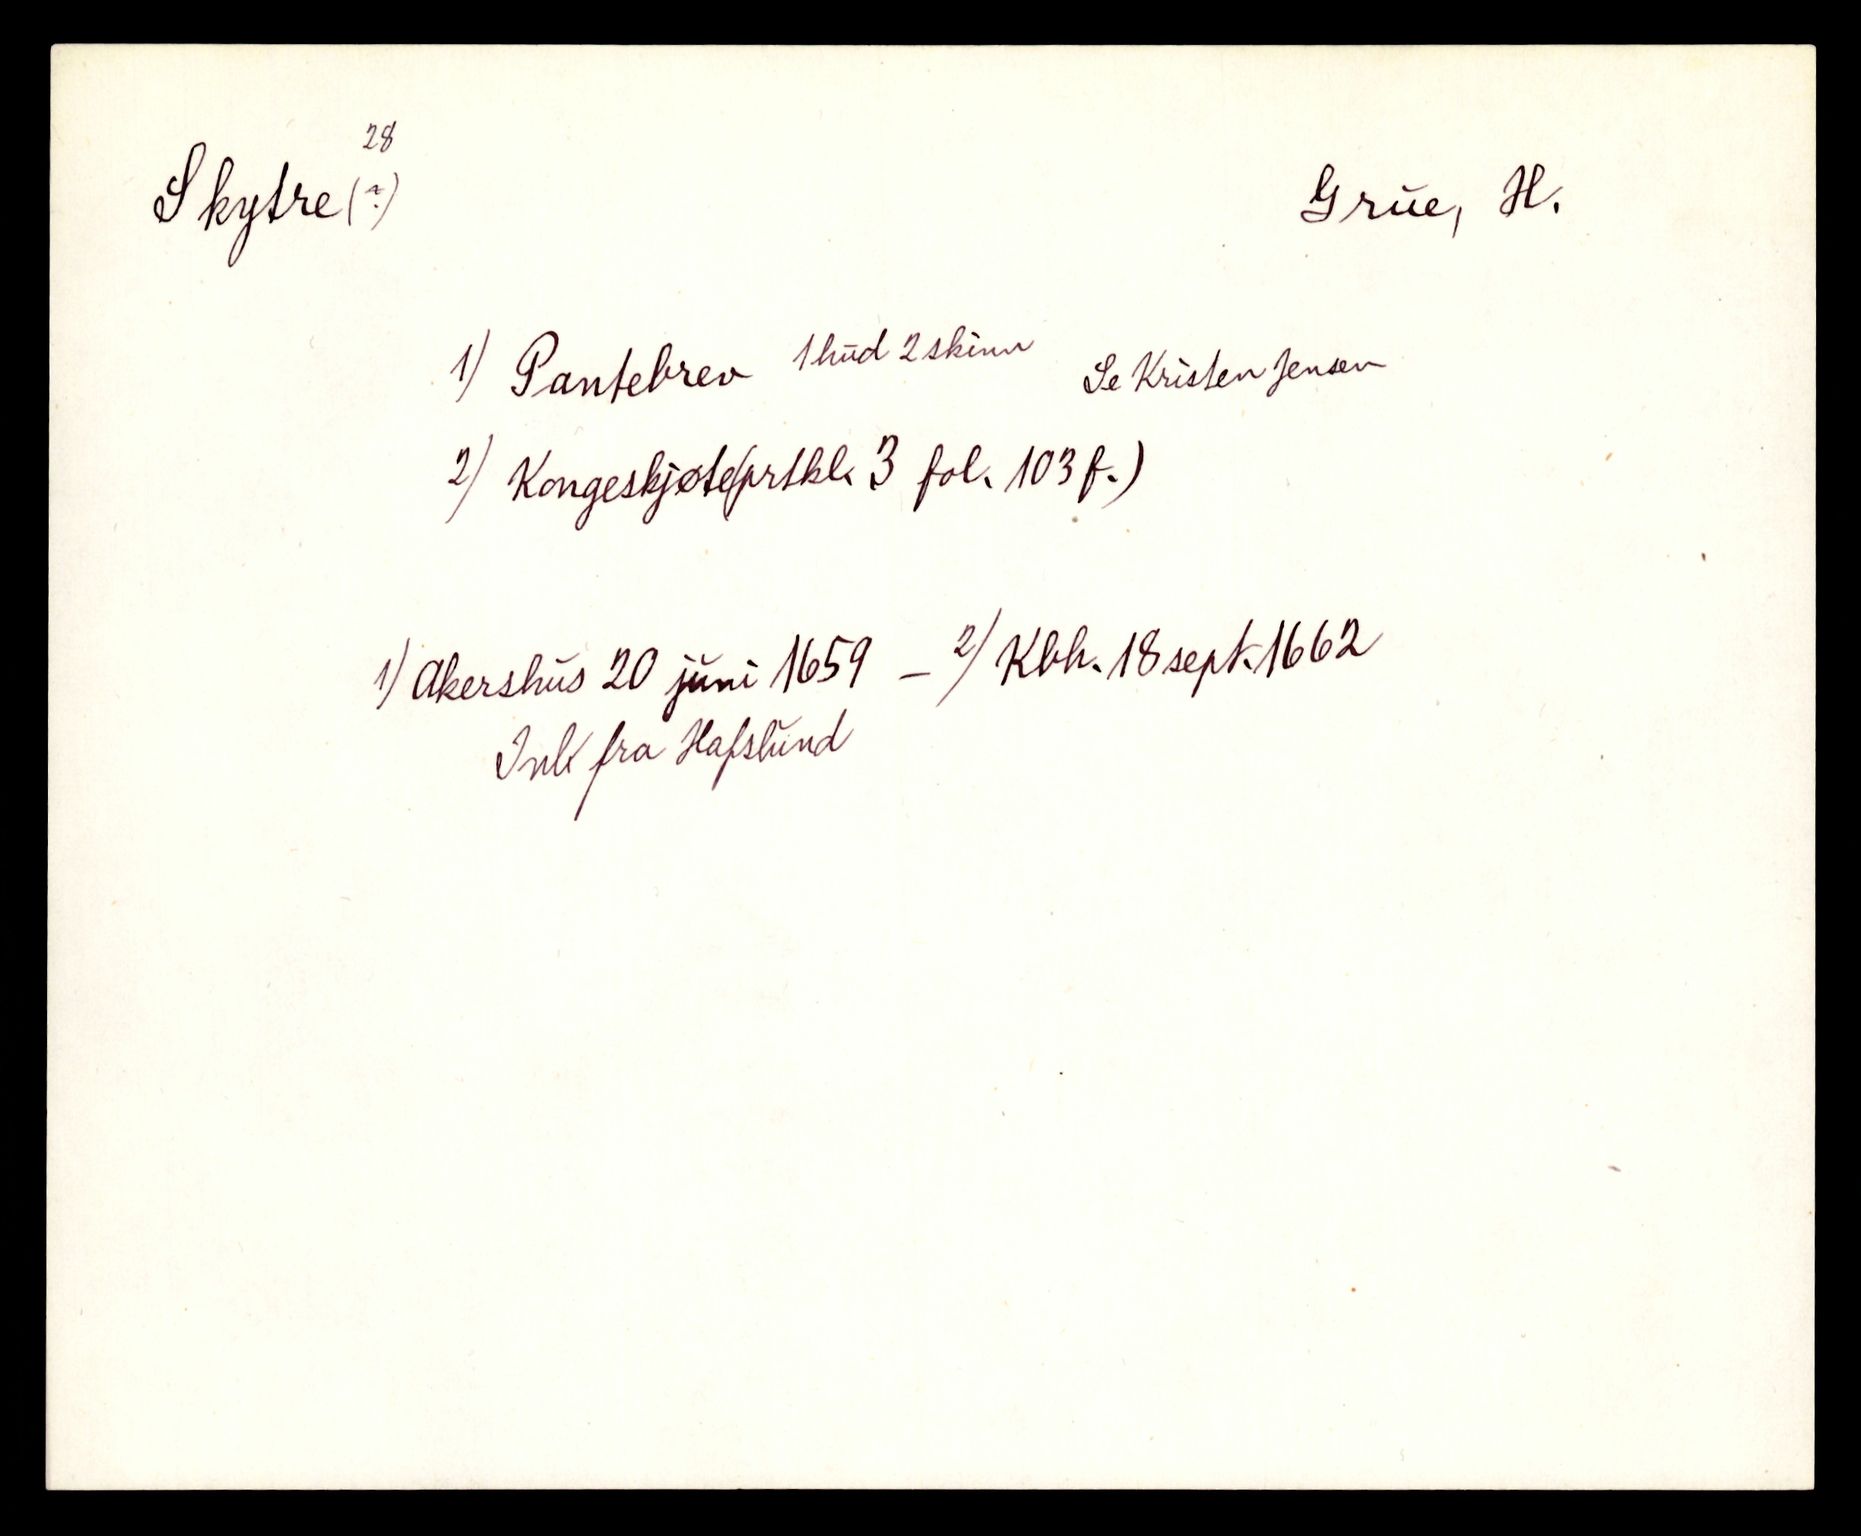 28
Skytre (?) Grue, H.
1) Pantebrev 1 hud 2 skinn Se Kristen Jensen
2) Kongeskjøte (prtkl. 3 fol. 103 f.)
1) Akershus 20 juni 1659 – 2) Kbh. 18 sept. 1662
Ink fra Hafslund